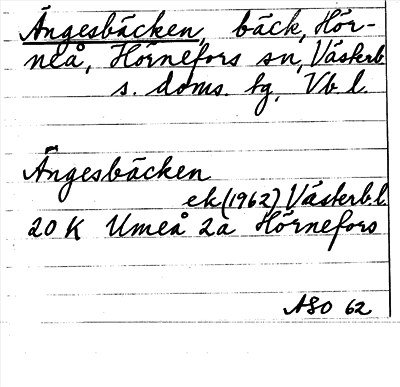 Ängesbäcken, bäck, Hör-
neå, Hörnefors sn, Västerb
s. doms. tg, Vb l.
Ängesbäcken
ek (1962) Västerb. l
20 K Umeå 2a Hörnefors
ASO 62